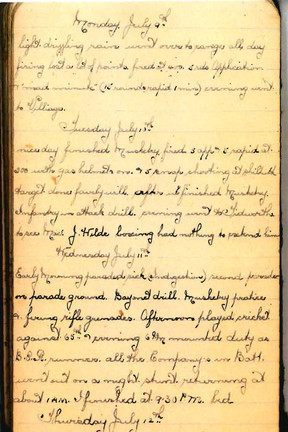 Monday July 9th
light drizzling rain went over to range all day
firing lost a lot of points fired at 200. 5 rds application
"mad minute" (15 rounds rapid 1 min) evening went
to Village.
Tuesday July 10th
Tuesday finished Musketry fired 5 app. 5 rapid at
300 with gas helmets on. & 5 snap shooting at
target done fairly well after finished Musketry.
Infantry in attack drill. evening went to
to see Med J. Holde boxing had nothing to extend him
Wednesday July 11th
Early Morning paraded sick (Indigestion) second parade
on parade ground. Bayonet drill. Musketry pratice
& firing rifle grenades. Afternoon played cricket
against 65th & evening 6 PM mounted duty as
runners. all the Company's in Batt.
went out on a night stunt returning at
about 1 AM. I finished at 9.30 P.M. bed
Thursday July 12th